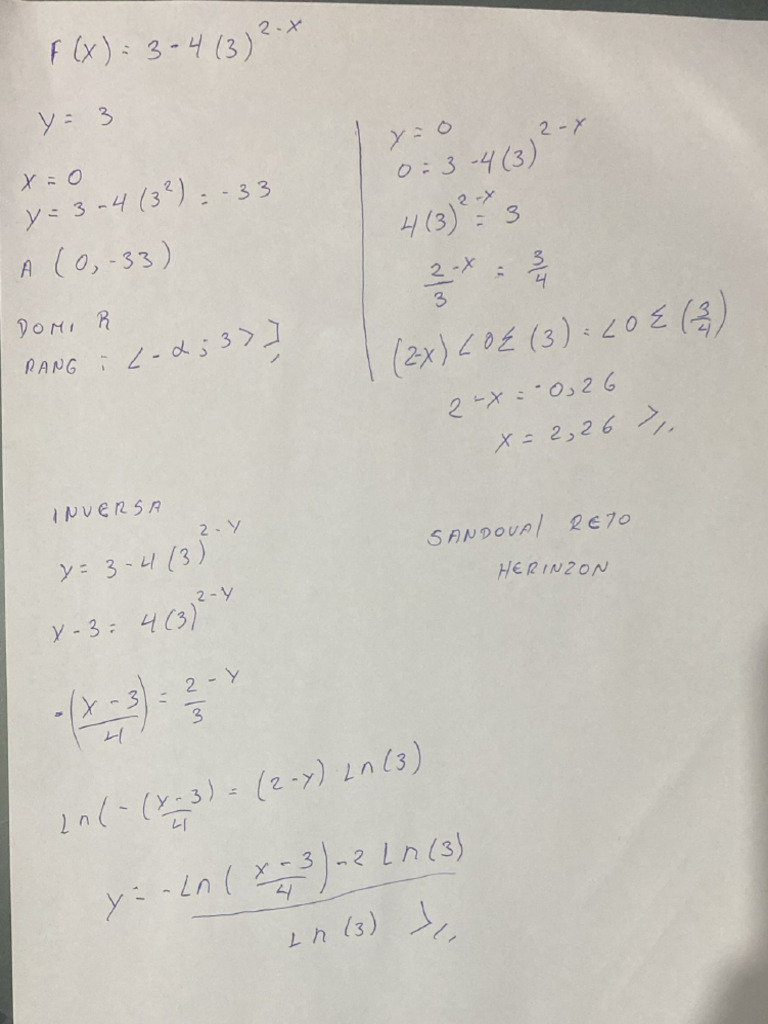 F(x) = 3 - 4(3)^2-x
y = 3
x = 0
y = 3 - 4(3²) = -33
A (0, -33)
DOMI R
RANG : <-α; 3>
y = 0
0 = 3 - 4(3)^2-x
4(3)^2-x = 3
2/3^-x = 3/4
(2-x) LOG (3) = LOG (3/4)
2 - x = -0,26
x = 2,26
INVERSA
y = 3 - 4(3)^2-y
x - 3 = 4(3)^2-y
-(x-3/4) = 2/3^-y
Ln(-(x-3/4) = (2-y) Ln(3)
y = -Ln(x-3/4) - 2 Ln(3)
Ln(3)
SANDOVAL RETO
HERINZON